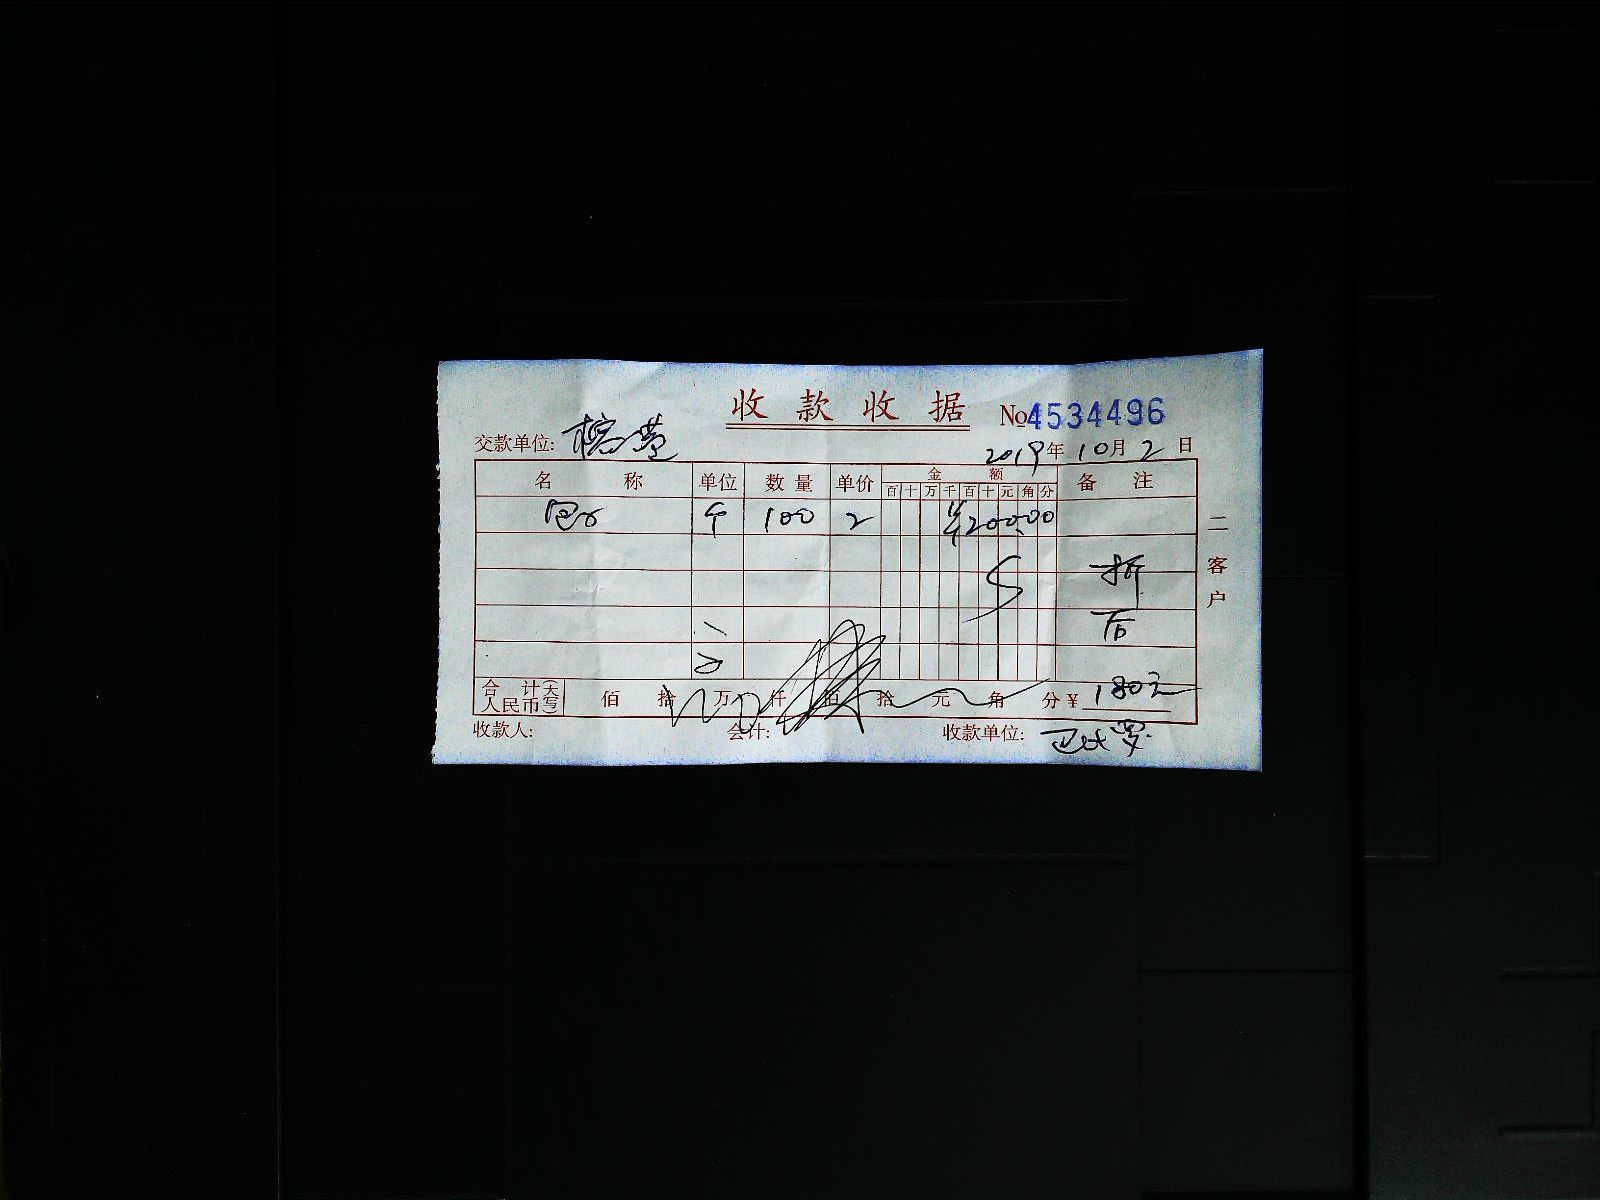 收款收据
No4534496
交款单位:
2019年10月2日
名 称 单位 数量 单价 金额 备注
百 十 万 千 百 十 元 角 分
个 100 2 ¥20000
折
后
合计(大写)人民币 佰 拾 万 仟 佰 拾 元 角 分 ¥ 180元
收款人: 会计: 收款单位:
二 客户